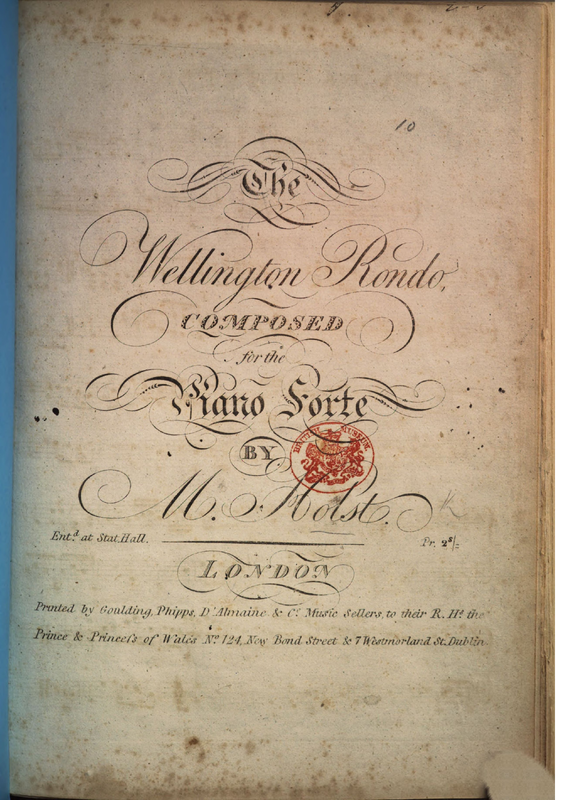 10
The
Wellington Rondo,
COMPOSED
for the
Piano Forte
BY
BRITISH MUSEUM
M. Holst.
Ent.d at Stat. Hall.
Pr. 2s/=
LONDON
Printed by Goulding, Phipps, D'Almaine & Co. Music Sellers, to their R. Hs. the
Prince & Princeſs of Wales No. 124, New Bond Street & 7 Westmorland St. Dublin